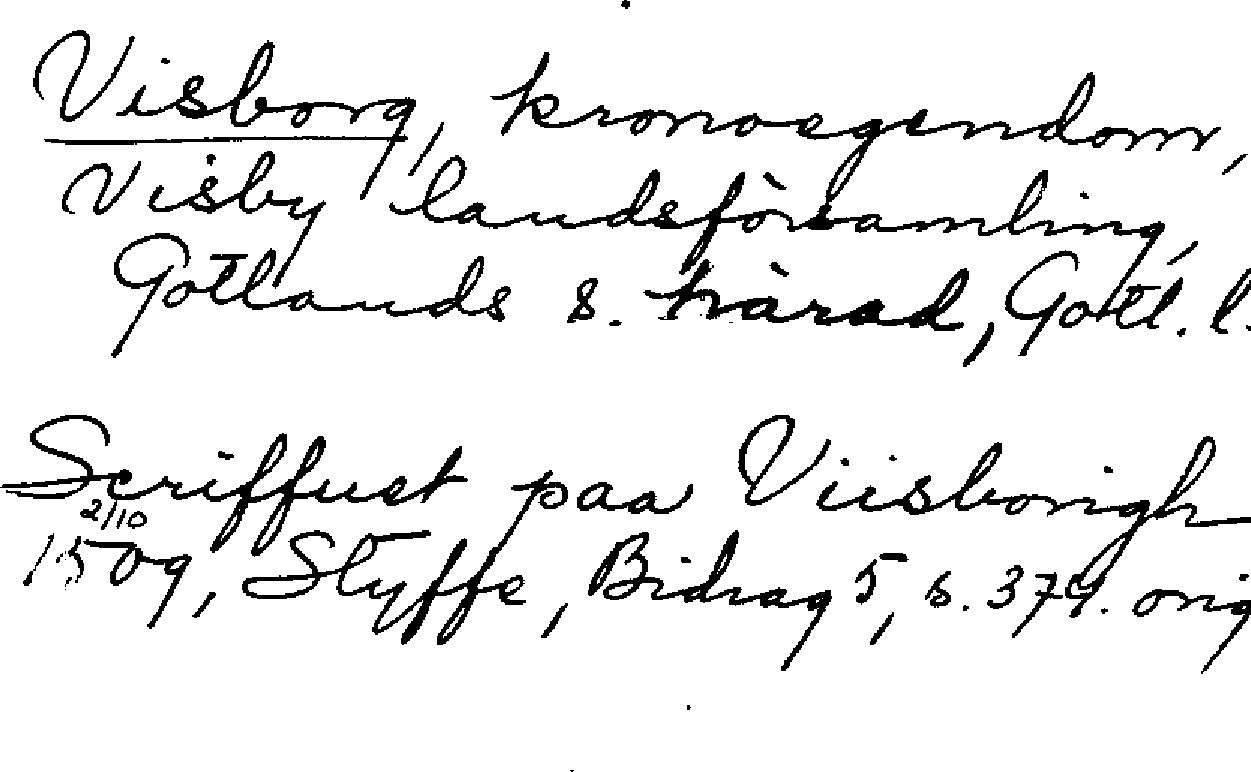 Visborg, kronoegendom,
Visby landsförsamling,
Gotlands s. härad, Gotl. l.
Scriffuet paa Viisborigh
2/10
1509, Styffe, Bidrag 5, s. 374. orig